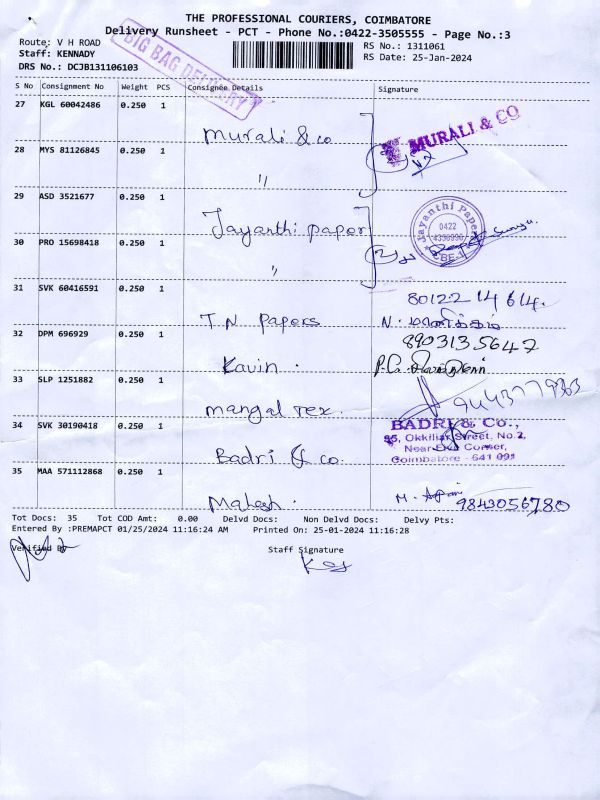 THE PROFESSIONAL COURIERS, COIMBATORE
Delivery Runsheet - PCT - Phone No.:0422-3505555 - Page No.:3
Route: V H ROAD
RS No.: 1311061
Staff: KENNADY
RS Date: 25-Jan-2024
DRS No.: DCJB131106103
BIG BAG DELIVERY
S No Consignment No Weight PCS Consignee Details Signature
27 KGL 60042486 0.250 1
Murali & co MURALI & CO
28 MYS 81126845 0.250 1
"
29 ASD 3521677 0.250 1
Jayanthi paper Jayanthi Paper 0422
30 PRO 15698418 0.250 1
"
31 SVK 60416591 0.250 1
80122 14614.
T N Papers N.
32 DPM 696929 0.250 1
8903135647
Kavin . P.G.
33 SLP 1251882 0.250 1
mangal Tex .
34 SVK 30190418 0.250 1
BADRI & Co.,
95, Okkiliar Street, No.2,
Near
Corner,
Badri & co. Coimbatore - 641 001
35 MAA 571112868 0.250 1
Mahesh . M. 9843056780
Tot Docs: 35 Tot COD Amt: 0.00 Delvd Docs: Non Delvd Docs: Delvy Pts:
Entered By :PREMAPCT 01/25/2024 11:16:24 AM Printed On: 25-01-2024 11:16:28
Verified By
Staff Signature